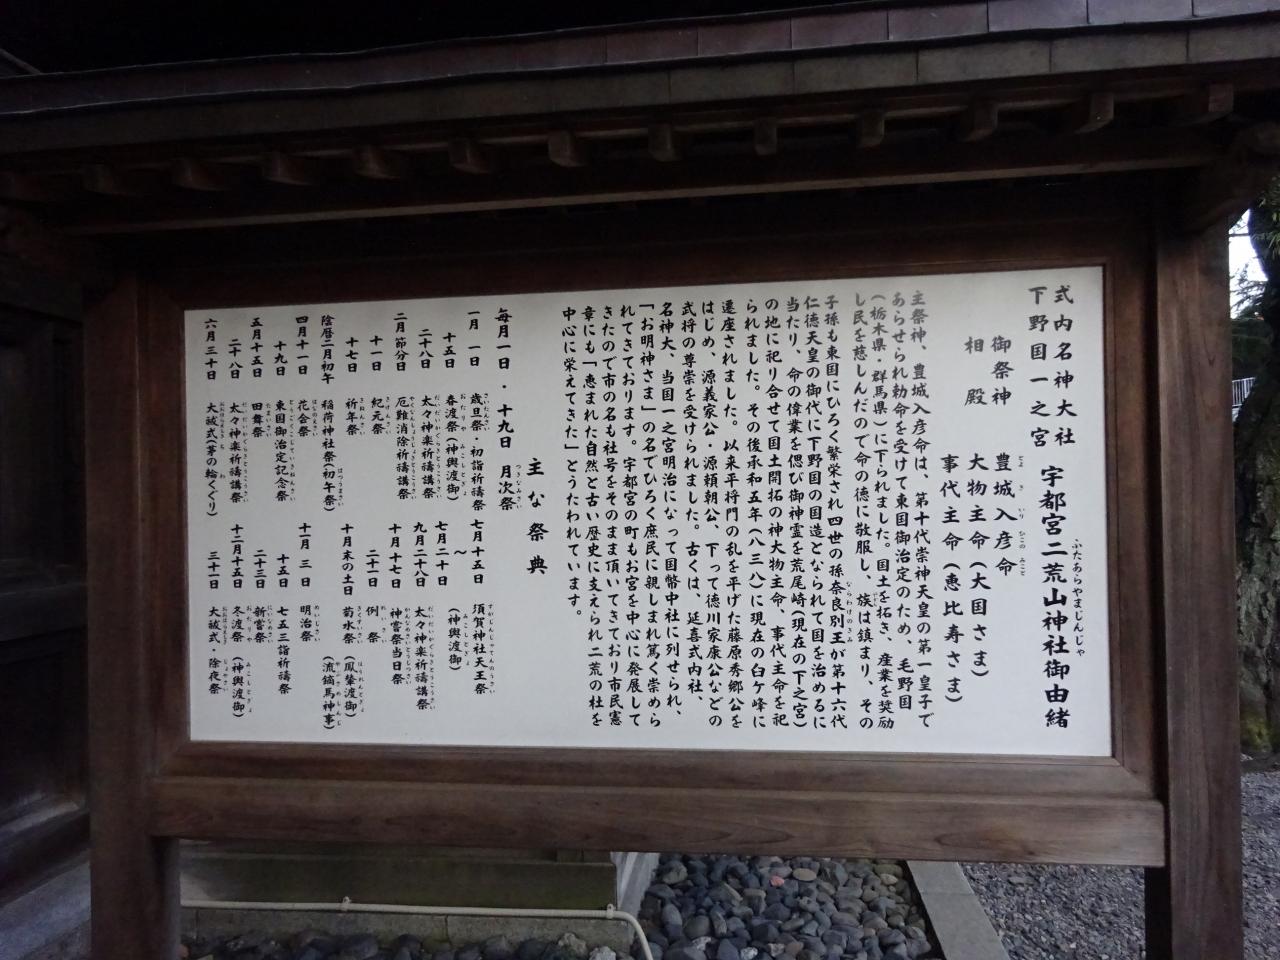 式内名神大社
下野国一之宮
宇都宮二荒山神社御由緒
ふたあらやまじんじゃ
御祭神 豊城入彦命
とよ き いり ひこの みこと
相殿 大物主命(大国さま)
事代主命(恵比寿さま)
主祭神、豊城入彦命は、第十代崇神天皇の第一皇子で
あらせられ勅命を受けて東国御治定のため、毛野国
(栃木県・群馬県)に下られました。国土を拓き、産業を奨励
し民を慈しんだので命の徳に敬服し、族は鎮まり、その
子孫も東国にひろく繁栄され四世の孫奈良別王が第十六代
ならわけのきみ
仁徳天皇の御代に下野国の国造となられて国を治めるに
当たり、命の偉業を偲び御神霊を荒尾崎(現在の下之宮)
の地に祀り合せて国土開拓の神大物主命、事代主命を祀
られました。その後承和五年(八三八)に現在の臼ヶ峰に
遷座されました。以来平将門の乱を平げた藤原秀郷公を
はじめ、源義家公・源頼朝公、下って徳川家康公などの
武将の尊崇を受けられました。古くは、延喜式内社、
名神大、当国一之宮明治になって国幣中社に列せられ、
「お明神さま」の名でひろく庶民に親しまれ篤く崇めら
れてきております。宇都宮の町もお宮を中心に発展して
きたので市の名も社号をそのまま頂いてきており市民憲
章にも「恵まれた自然と古い歴史に支えられ二荒の杜を
中心に栄えてきた」とうたわれています。
主な祭典
毎月一日・十九日 月次祭
つきなみさい
一月一日 歳旦祭・初詣祈禱祭
十五日 春渡祭(神輿渡御)
二十八日 太々神楽祈禱講祭
二月節分日 厄難消除祈禱講祭
十一日 紀元祭
十七日 祈年祭
陰暦二月初午 稲荷神社祭(初午祭)
四月十一日 花会祭
十九日 東国御治定記念祭
五月十五日 田舞祭
二十八日 太々神楽祈禱講祭
六月三十日 大祓式(茅の輪くぐり)
七月十五日 須賀神社天王祭
～
七月二十日 (神輿渡御)
九月二十八日 太々神楽祈禱講祭
十月十七日 神嘗祭当日祭
二十一日 例祭
十月末の土日 菊水祭(鳳輦渡御)(流鏑馬神事)
十一月三日 明治祭
十五日 七五三詣祈禱祭
二十三日 新嘗祭
十二月十五日 冬渡祭(神輿渡御)
三十一日 大祓式・除夜祭